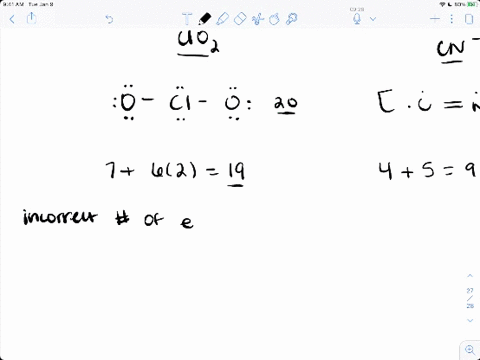 9:41 AM Tue Jan 8
50%
03:28
ClO2
CN-
:O - Cl - O: 20
[ . C = N
7 + 6(2) = 19
4 + 5 = 9
incorrect # of e
27
/
28